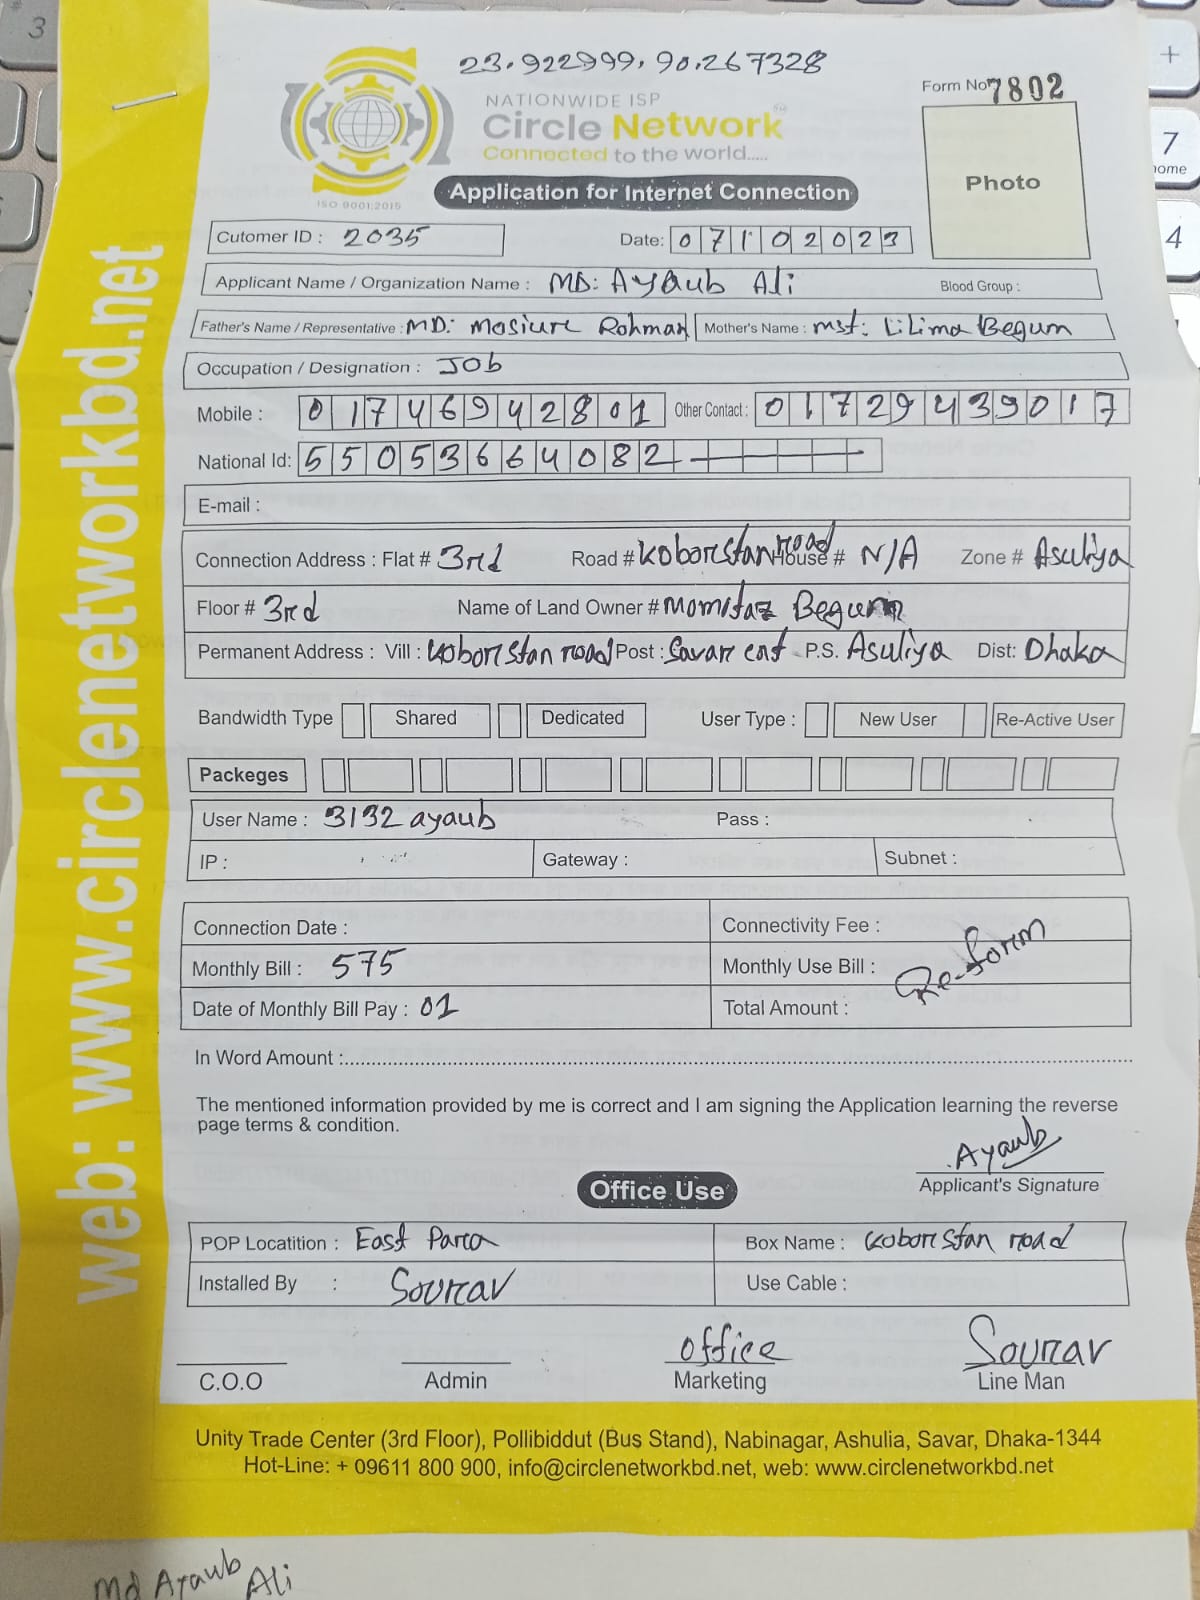 23.922999, 90.267328
Form No 7802
NATIONWIDE ISP
Circle Network
Connected to the world.....
ISO 9001:2015
Photo
Application for Internet Connection
Cutomer ID : 2035
Date: 07102023
Applicant Name / Organization Name : MD: Ayaub Ali
Blood Group :
Father's Name / Representative : MD: Mosiure Rohman
Mother's Name : mst: Lilima Begum
Occupation / Designation : JOb
Mobile : 01746942801
Other Contact : 01729439017
National Id: 5505366408 2
E-mail :
Connection Address : Flat # 3rd Road # Koborstan road House # N/A Zone # Asuliya
Floor # 3rd Name of Land Owner # Momitaz Begum
Permanent Address : Vill : Koborstan road Post : Savar east P.S. Asuliya Dist: Dhaka
Bandwidth Type Shared Dedicated User Type : New User Re-Active User
Packeges
User Name : 3132 ayaub Pass :
IP : Gateway : Subnet :
Connection Date : Connectivity Fee :
Monthly Bill : 575 Monthly Use Bill :
Re-form
Date of Monthly Bill Pay : 01 Total Amount :
In Word Amount :
The mentioned information provided by me is correct and I am signing the Application learning the reverse
page terms & condition.
Ayaub
Applicant's Signature
Office Use
POP Locatition : East Para Box Name : Koborstan road
Installed By : Sourav Use Cable :
office Sourav
C.O.O Admin Marketing Line Man
Unity Trade Center (3rd Floor), Pollibiddut (Bus Stand), Nabinagar, Ashulia, Savar, Dhaka-1344
Hot-Line: + 09611 800 900, info@circlenetworkbd.net, web: www.circlenetworkbd.net
web: www.circlenetworkbd.net
Md Ayaub Ali
3
+
7
home
4